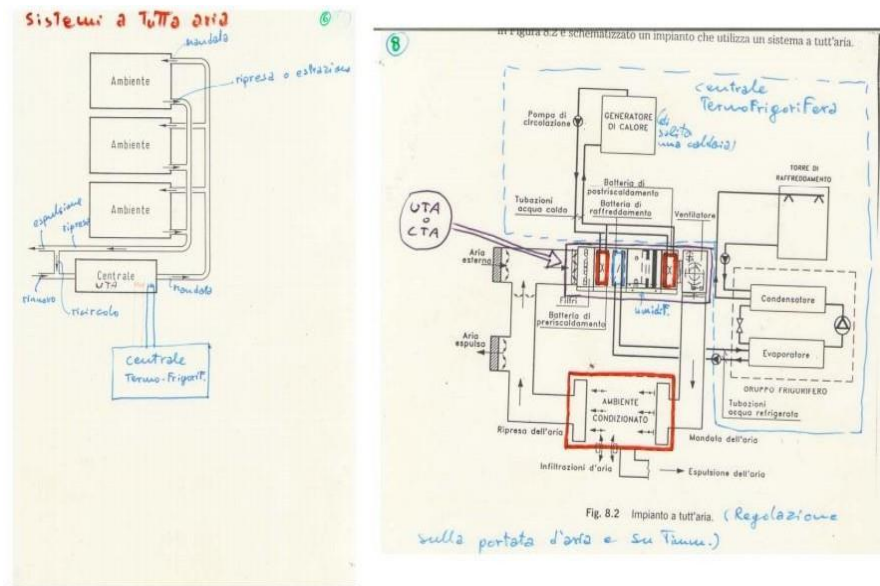 Sistemi a Tutta aria
6
mandata
ripresa o estrazione
Ambiente
Ambiente
Ambiente
espulsione
ripresa
Centrale
UTA
rinnovo
mandata
ricircolo
centrale
Termo-Frigorif.
8
In Figura 8.2 è schematizzato un impianto che utilizza un sistema a tutt'aria.
centrale
TermoFrigoriFera
Pompa di
circolazione
GENERATORE
DI CALORE
(di
solito
una caldaia)
TORRE DI
RAFFREDDAMENTO
Batteria di
postriscaldamento
Tubazioni
acqua calda
Batteria di
raffreddamento
Ventilatore
UTA
o
CTA
Aria
esterna
Filtri
umidif.
Batteria di
preriscaldamento
Condensatore
Aria
espulsa
Evaporatore
GRUPPO FRIGORIFERO
Tubazioni
acqua refrigerata
AMBIENTE
CONDIZIONATO
Ripresa dell'aria
Mandata dell'aria
Infiltrazioni d'aria
Espulsione dell'aria
Fig. 8.2 Impianto a tutt'aria. (Regolazione
sulla portata d'aria e su Timm.)